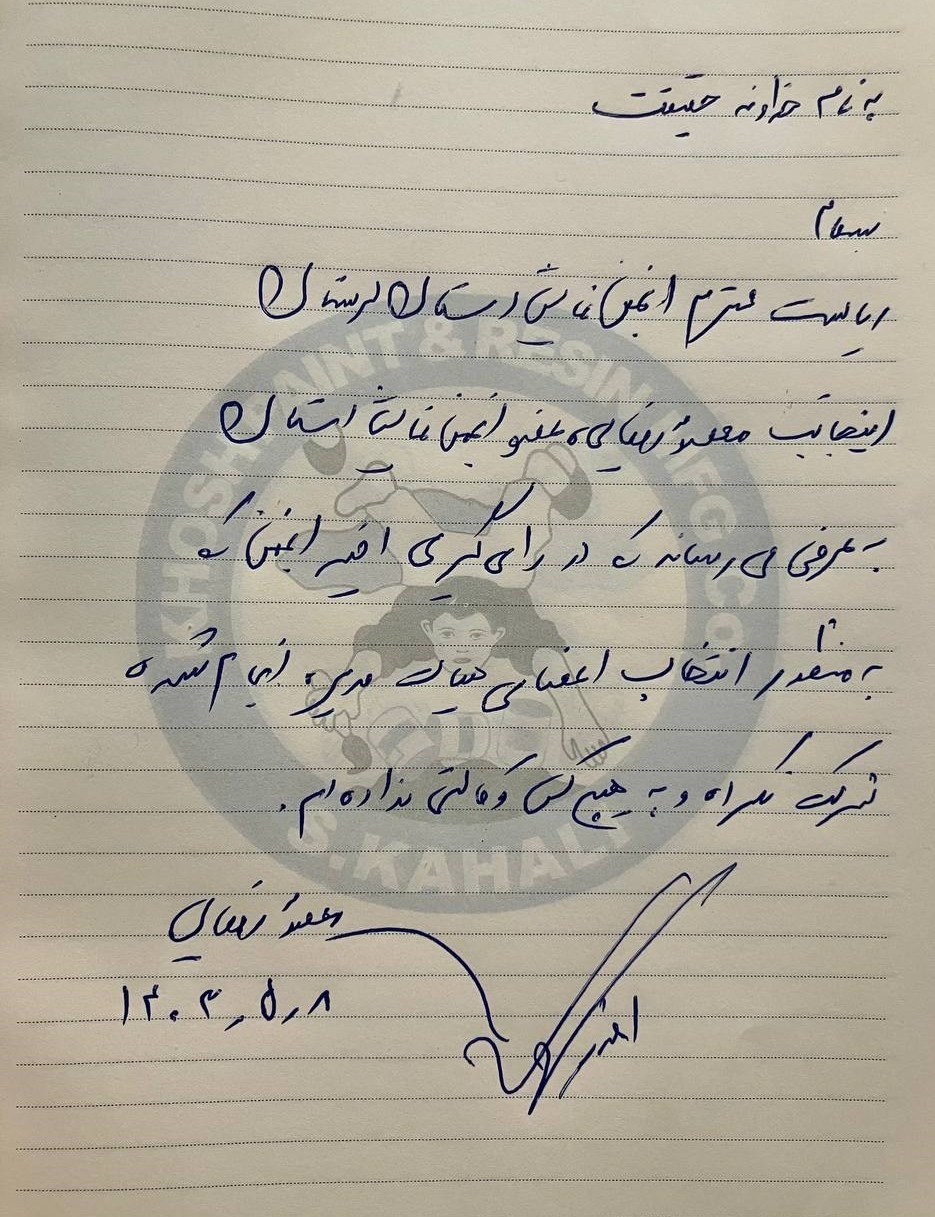 به نام خداوند حقیقت
سلام
ریاست محترم انجمن نمایش استان لرستان
اینجانب رضایی، عضو انجمن نمایش استان
به عرض می رساند که در رای گیری اخیر انجمن که
به منظور انتخاب اعضای هیات مدیره انجام شده
شرکت نکرده و به هیچ کس وکالتی نداده ام.
رضایی
۱۴۰۴,۵,۸
KHOSH PAINT & RESIN MFG. CO
S.KAHALI